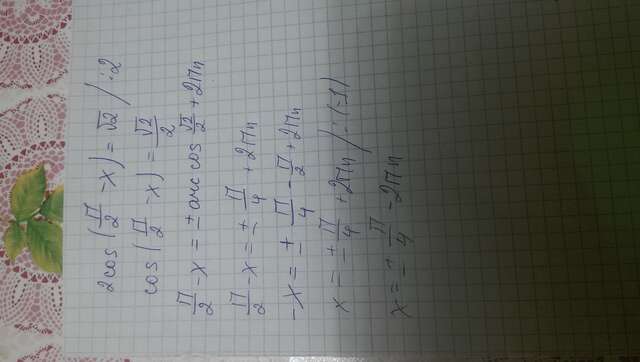 2cos(π/2 - x) = √2 / :2
cos(π/2 - x) = √2/2
π/2 - x = ± arc cos √2/2 + 2πn
π/2 - x = ± π/4 + 2πn
-x = ± π/4 - π/2 + 2πn
x = ± π/4 + 2πn / :(-1)
x = ± π/4 - 2πn